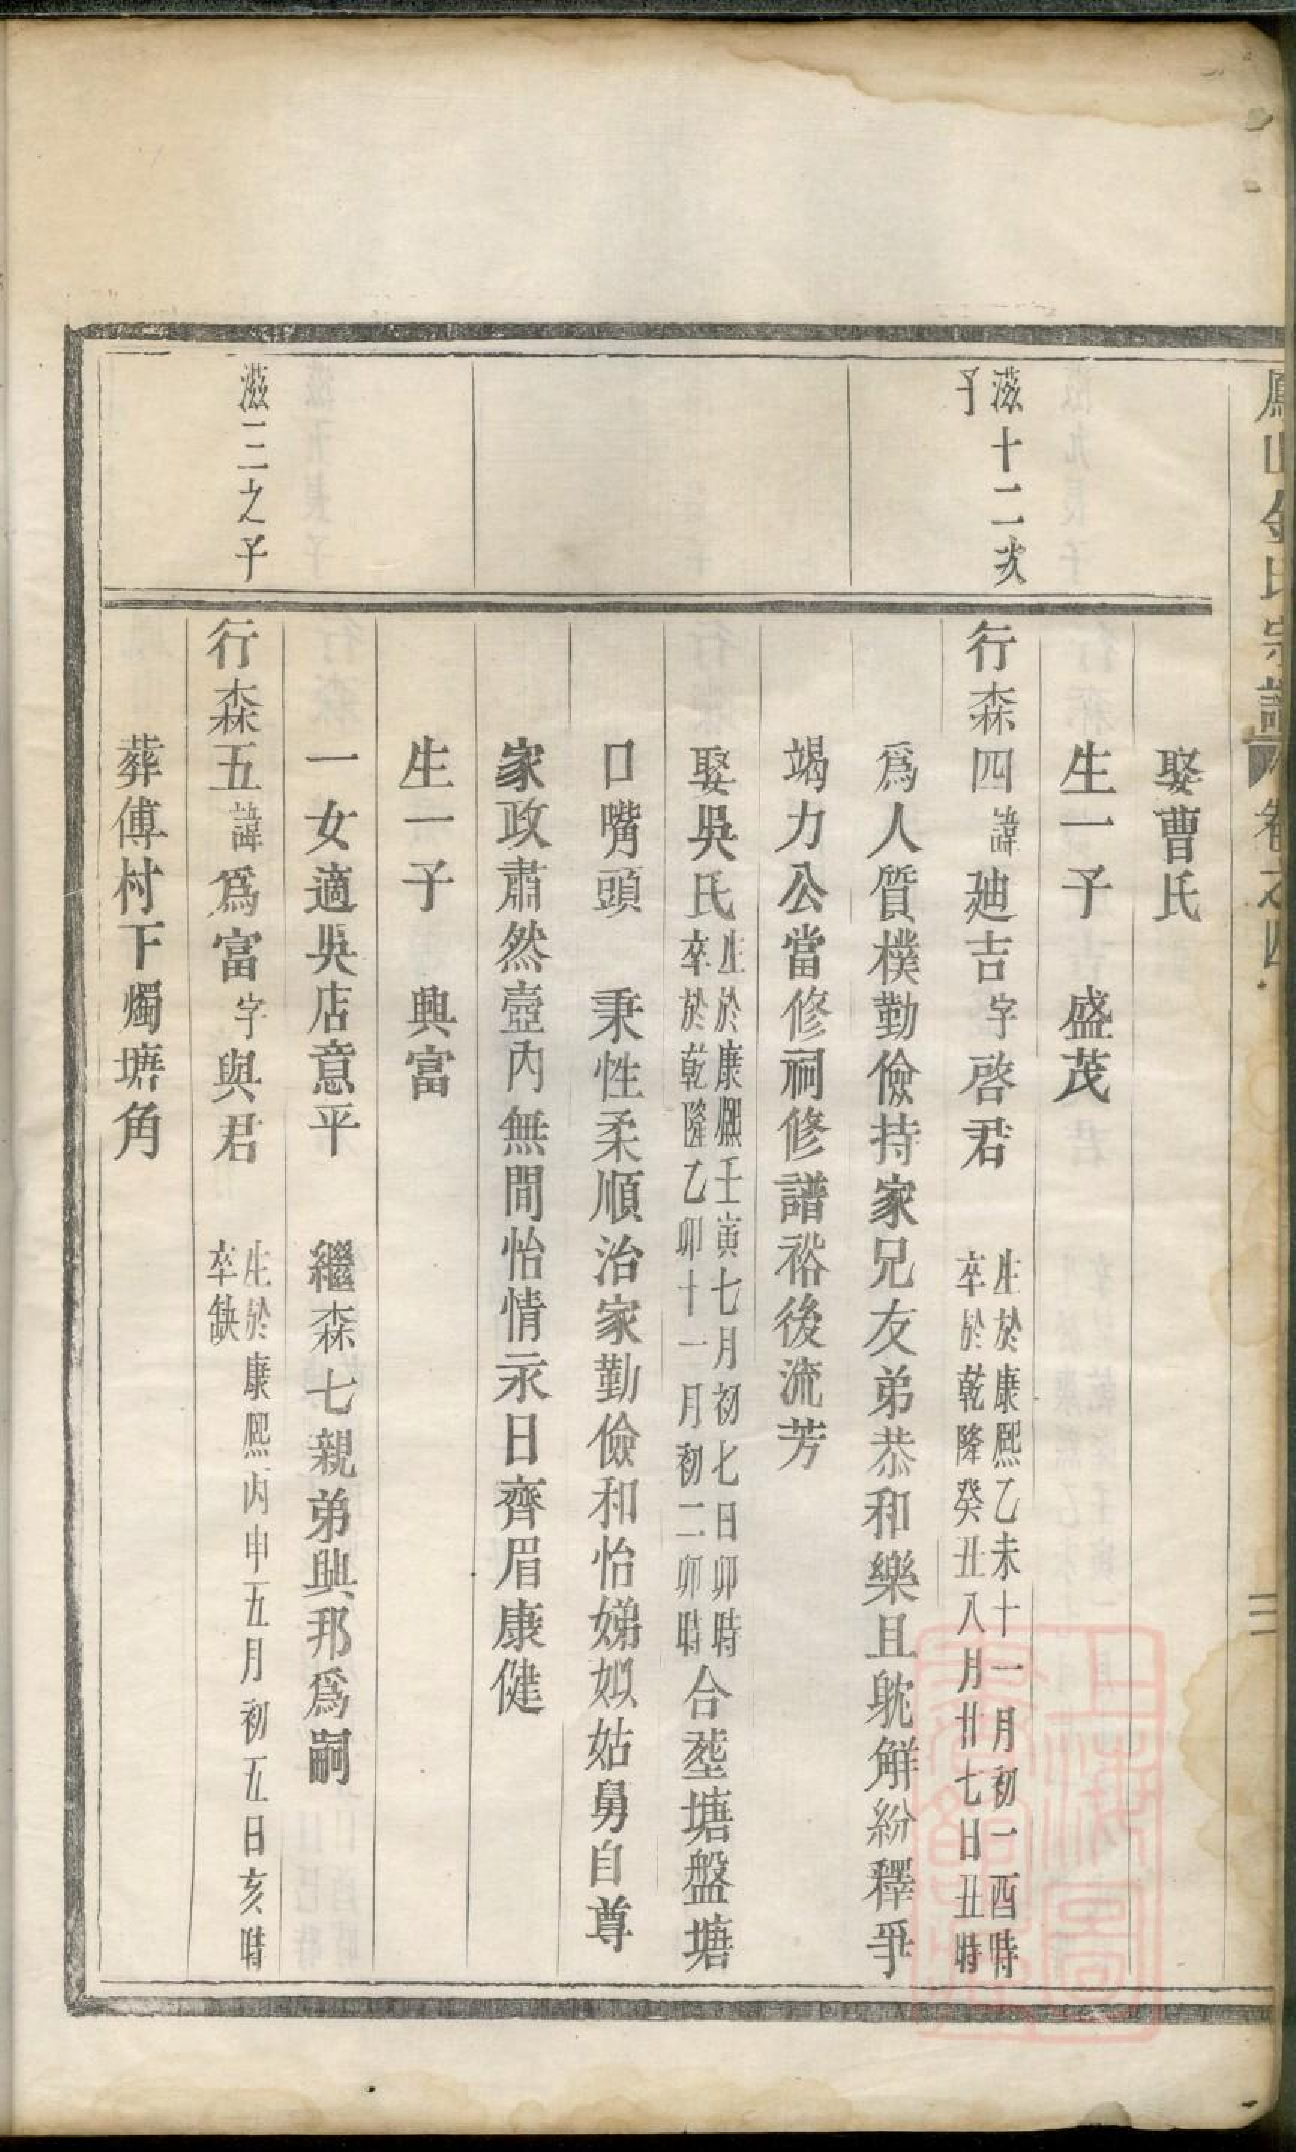 鳳山金氏宗譜 卷之四 三
娶曹氏
生一子 盛茂
滋十二次子
行森四諱廸吉字啓君 生於康熙乙未十一月初一酉時
卒於乾隆癸丑八月廿七日丑時
爲人質樸勤儉持家兄友弟恭和樂且躭觧紛釋爭
竭力公當修祠修譜裕後流芳
娶吳氏 生於康熙壬寅七月初七日卯時
卒於乾隆乙卯十一月初二卯時 合塟塘盤塘
口嘴頭 秉性柔順治家勤儉和怡娣姒姑舅自尊
家政肅然壼內無間怡情永日齊眉康健
生一子 興富
一女適吳店意平 繼森七親弟興邦爲嗣
滋三之子
行森五諱爲富字與君 生於康熙丙申五月初五日亥時
卒缺
葬傅村下燭塘角